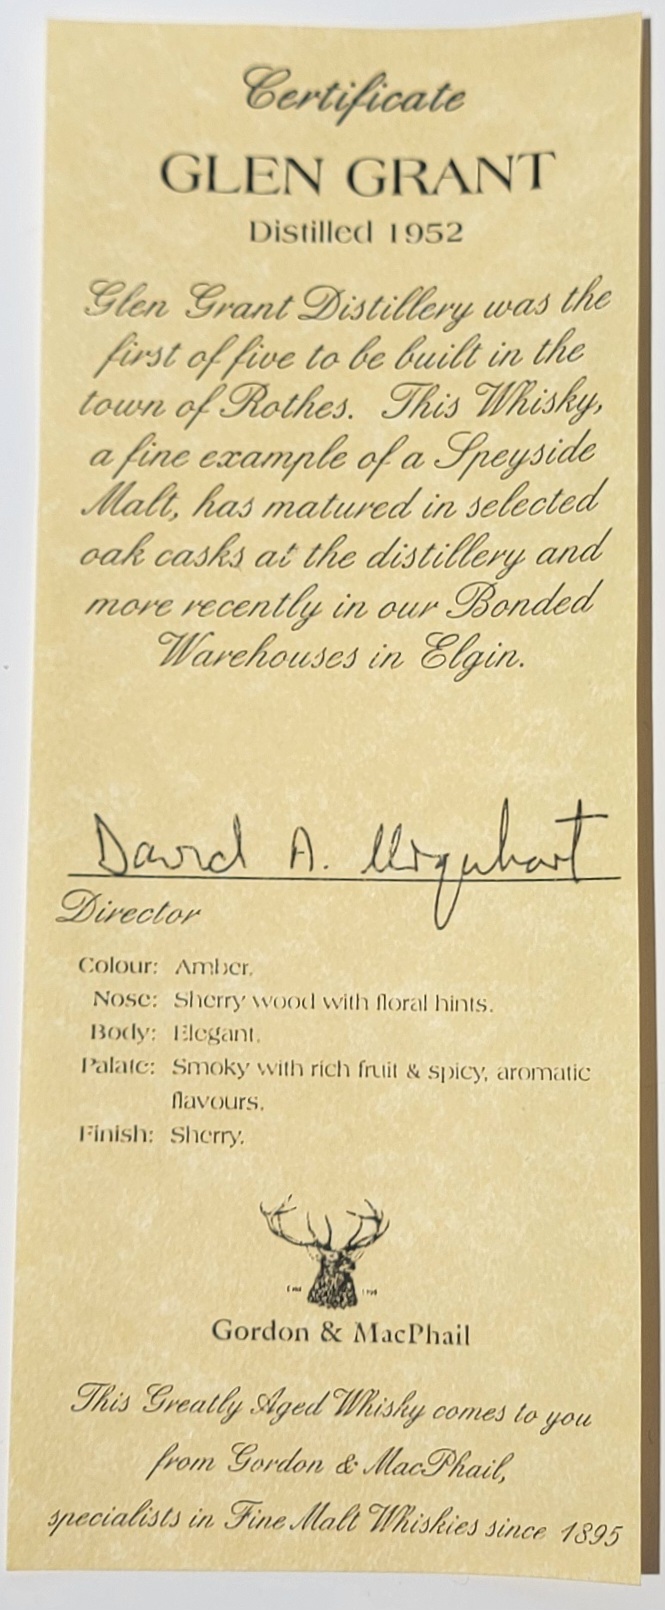 Certificate
GLEN GRANT
Distilled 1952
Glen Grant Distillery was the
first of five to be built in the
town of Rothes. This Whisky,
a fine example of a Speyside
Malt, has matured in selected
oak casks at the distillery and
more recently in our Bonded
Warehouses in Elgin.
David A. Urquhart
Director
Colour: Amber.
Nose: Sherry wood with floral hints.
Body: Elegant.
Palate: Smoky with rich fruit & spicy, aromatic
flavours.
Finish: Sherry.
Gordon & MacPhail
This Greatly Aged Whisky comes to you
from Gordon & MacPhail,
specialists in Fine Malt Whiskies since 1895